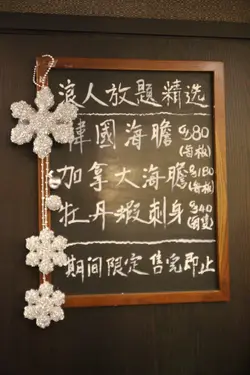 浪人放題精选
韓國海膽 $80
(每板)
加拿大海膽 $180
(每板)
牡丹蝦刺身 $40
(每隻)
期间限定售完即止